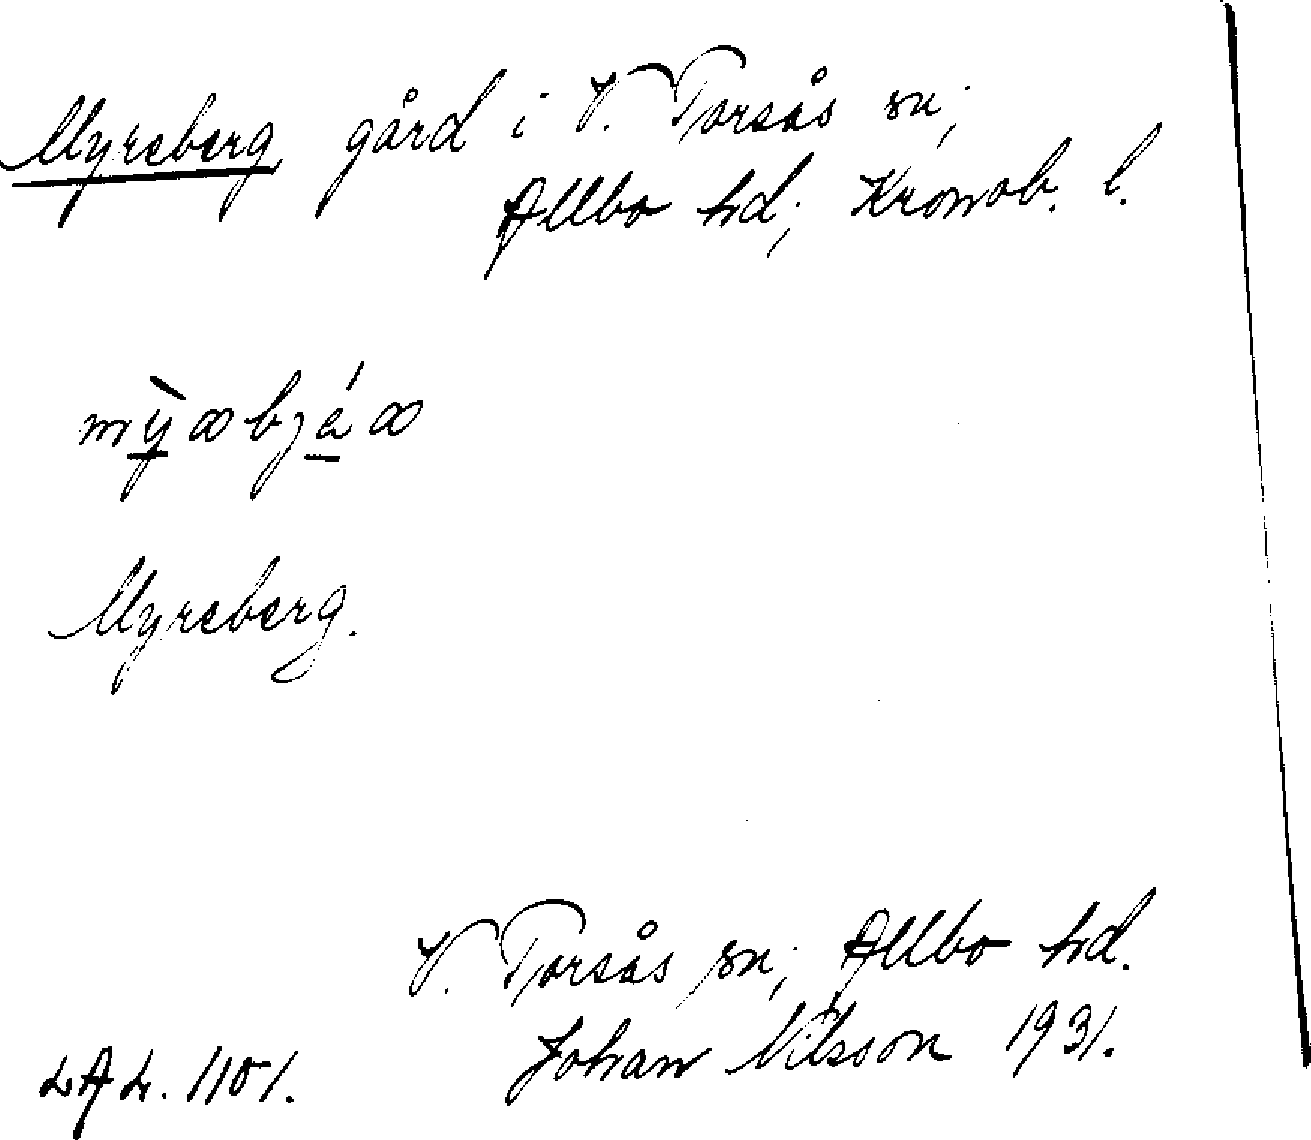 Myreberg gård i V. Torsås sn;
Allbo hd; Kronob. l.
mỳꝏbjáꝏ
Myreberg.
V. Torsås sn; Allbo hd.
Johan Nilsson 1931.
LAL. 1101.